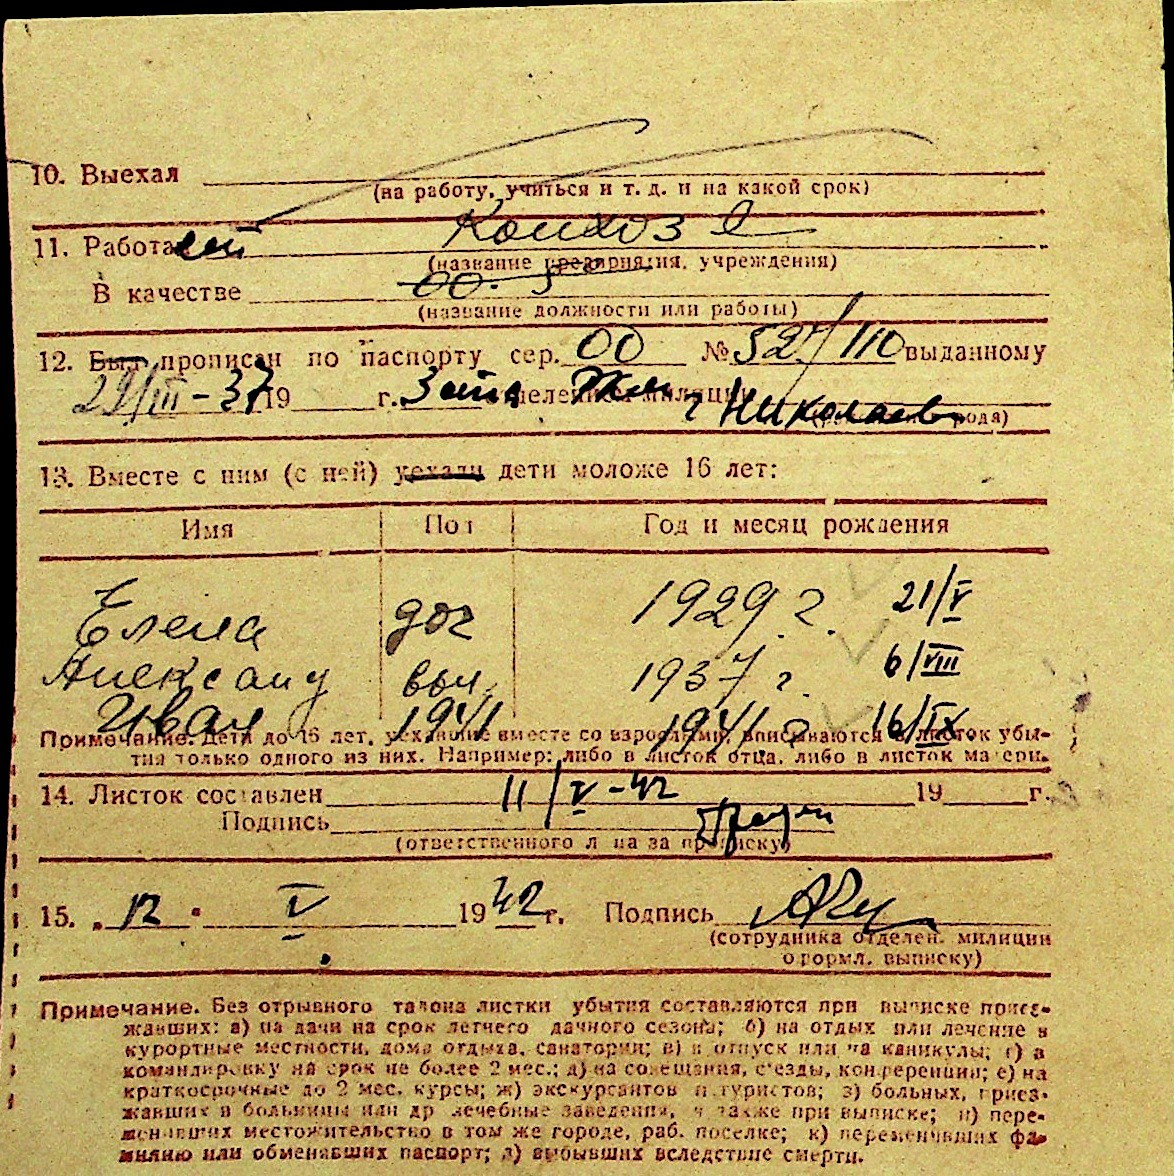 10. Выехал
(на работу, учиться и т. д. и на какой срок)
11. Работает Колхоз
(название предприятия, учреждения)
В качестве
(название должности или работы)
12. Был прописан по паспорту сер. 00 № 527/110 выданному
29/III-37 19 г. отделением милиции г Николаев
13. Вместе с ним (с ней) уехали дети моложе 16 лет:
Имя Пол Год и месяц рождения
Елена доч 1929 г. 21/V
Александ 1937 г. 6/VIII
Иван 1941 1941 г 16/IX
Примечание. Дети до 16 лет, уехавшие вместе со взрослыми, вписываются в листок убы-
тия только одного из них. Например: либо в листок отца, либо в листок матери.
14. Листок составлен 11/V-42 19 г.
Подпись
(ответственного лица за прописку)
15. „12" V 1942 г. Подпись
(сотрудника отделен. милиции
оформл. выписку)
Примечание. Без отрывного талона листки убытия составляются при выписке приез-
жавших: а) на дачи на срок летнего дачного сезона; б) на отдых или лечение в
курортные местности, дома отдыха, санатории; в) в отпуск или на каникулы; г) в
командировку на срок не более 2 мес.; д) на совещания, съезды, конференции; е) на
краткосрочные до 2 мес. курсы; ж) экскурсантов и туристов; з) больных, приез-
жавших в больницы или др лечебные заведения, а также при выписке; и) пере-
менивших местожительство в том же городе, раб. поселке; к) переменивших фа-
милию или обменявших паспорт; л) выбывших вследствие смерти.